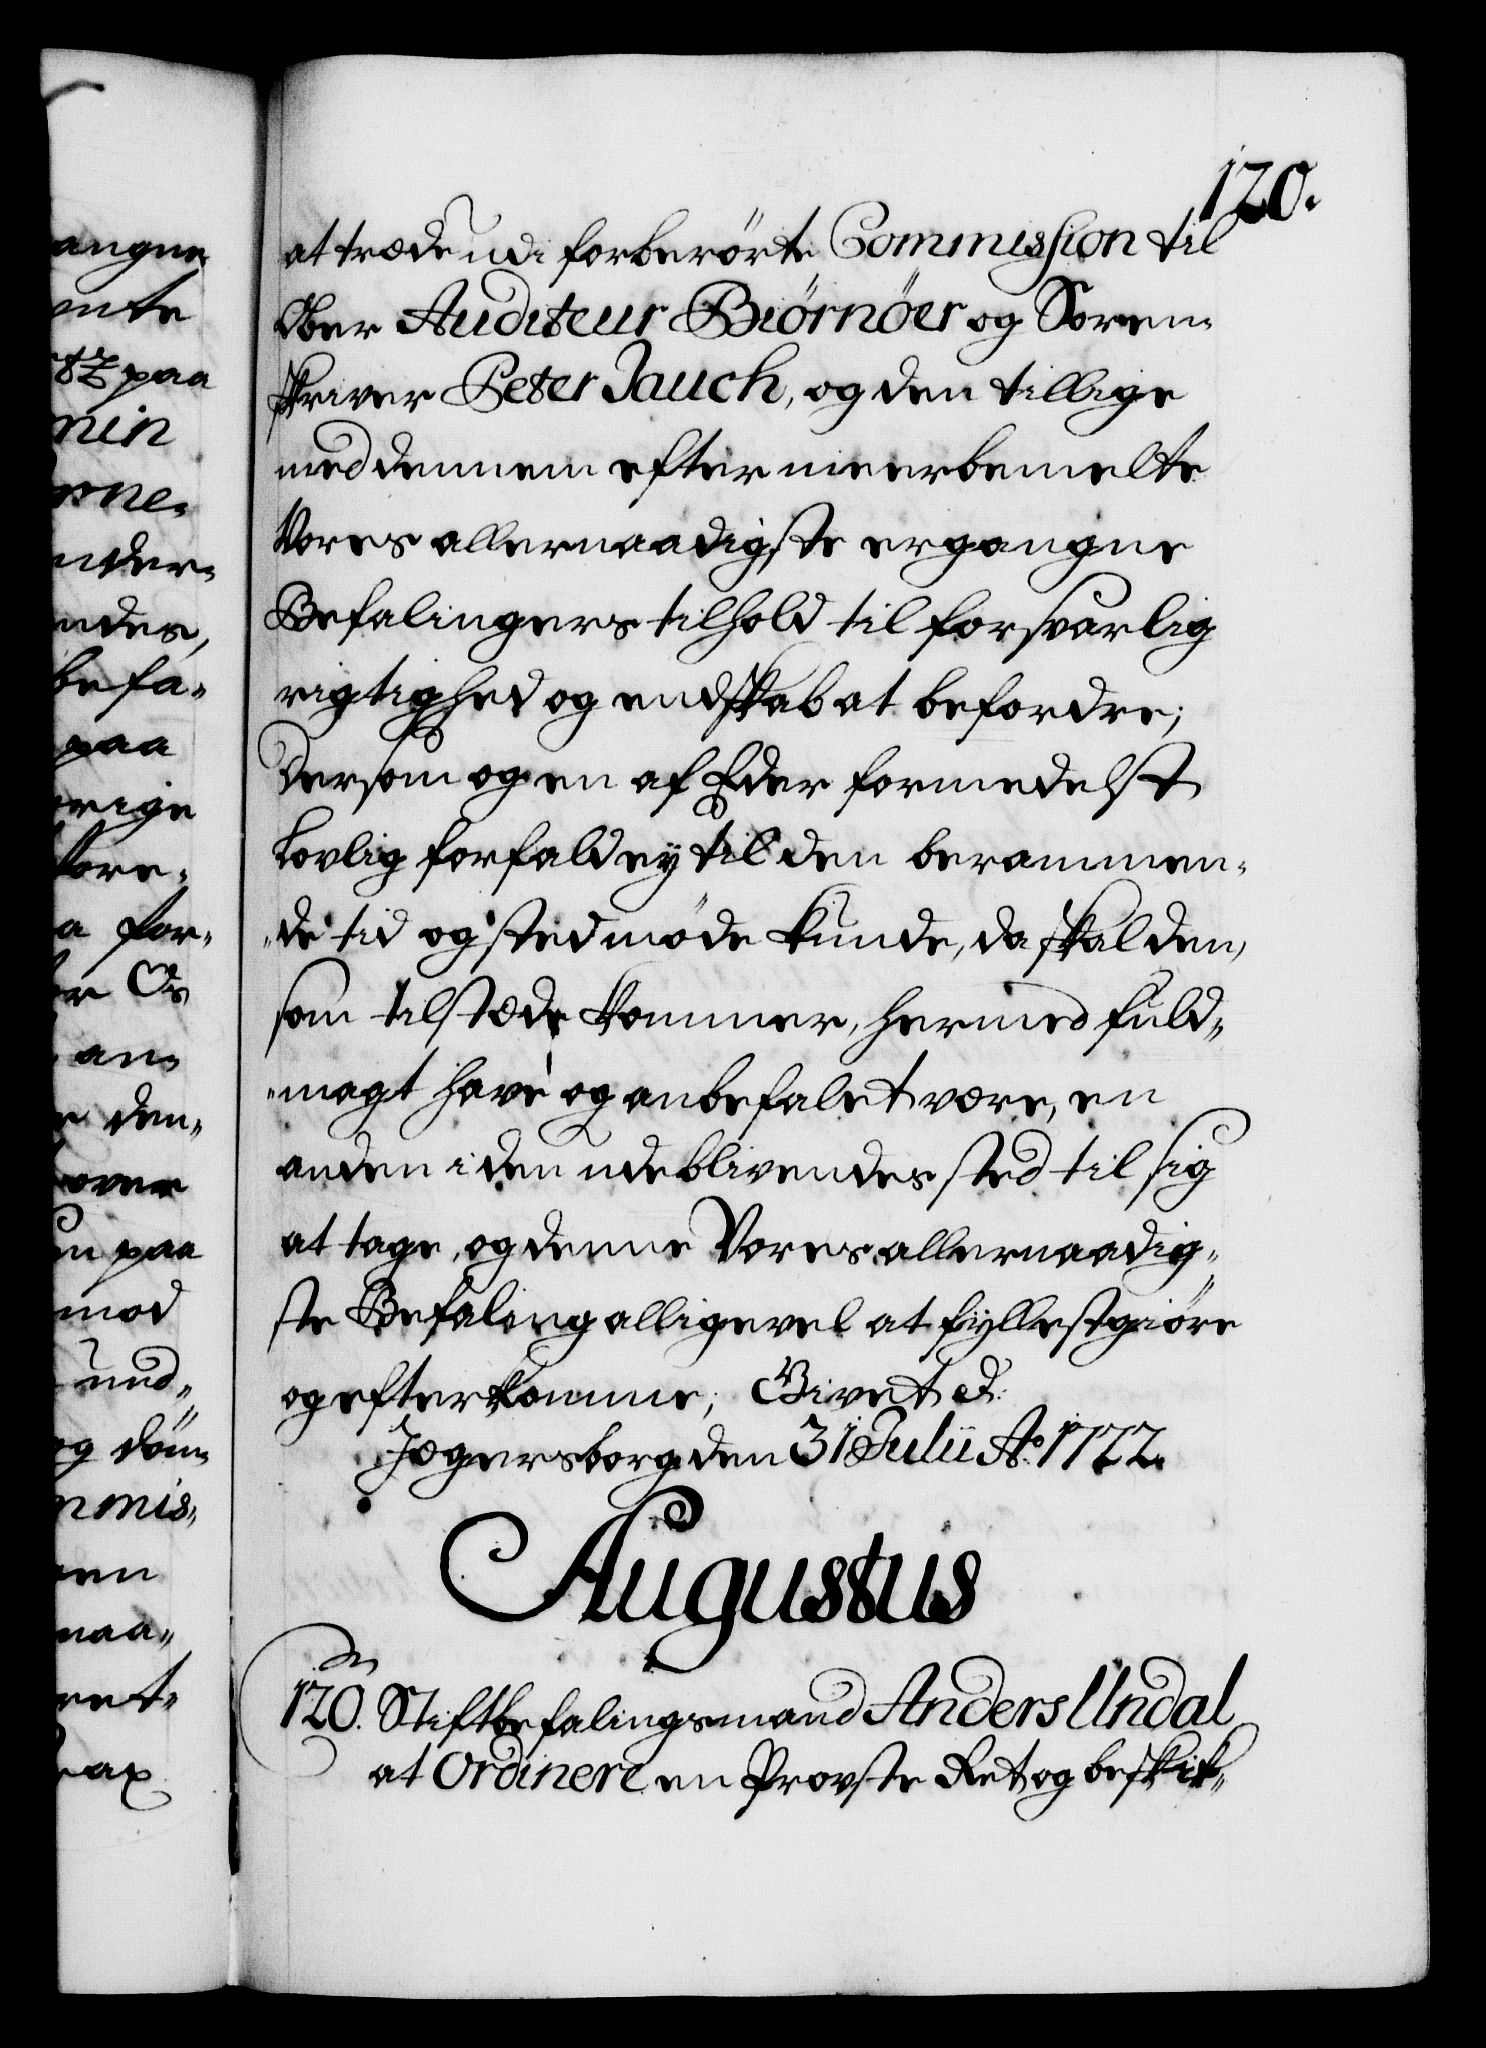 120.
at træde udi forberørte Commission til
Ober Auditeur Biörnöer og Soren-
skriver Peter Jauch, og den tillige
med dennem efter meerbemelte
Vores allernaadigste ergangne
Befalingers tilhold til forsvarlig
rigtighed og endskab at befordre;
Dersom og en af Eder formedelst
Lovlig forfald ey til den berammen-
"de tid og sted møde kunde, da skal den,
som tilstæde kommer, hermed fuld„
"magt have og anbefalet være, en
anden i den udeblivendes sted til sig
at tage, og denne Vores allernaadig„
ste Befaling alligevel at fyllestgiöre
og efterkomme; Givet d.
Jægersborg den 31 Julii Ao. 1722.
Augustus
120. Stiftbefalingsmand Anders Undal
at Ordinere en Provste Ret og beskik„
angne
mte
782 paa
min
rne.
nder„
ndes,
befa„
paa
rige
fore„
a for„
er Os
an„
den„
over
en paa
mod
und„
og döm„
mmis„
gen
naa„
ret„
ax